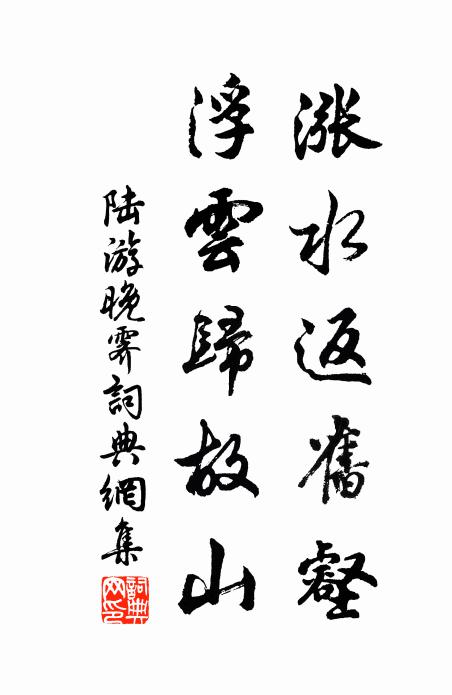 漲水返舊壑
浮雲歸故山
陸游晚霽詞典網集
詞典网印